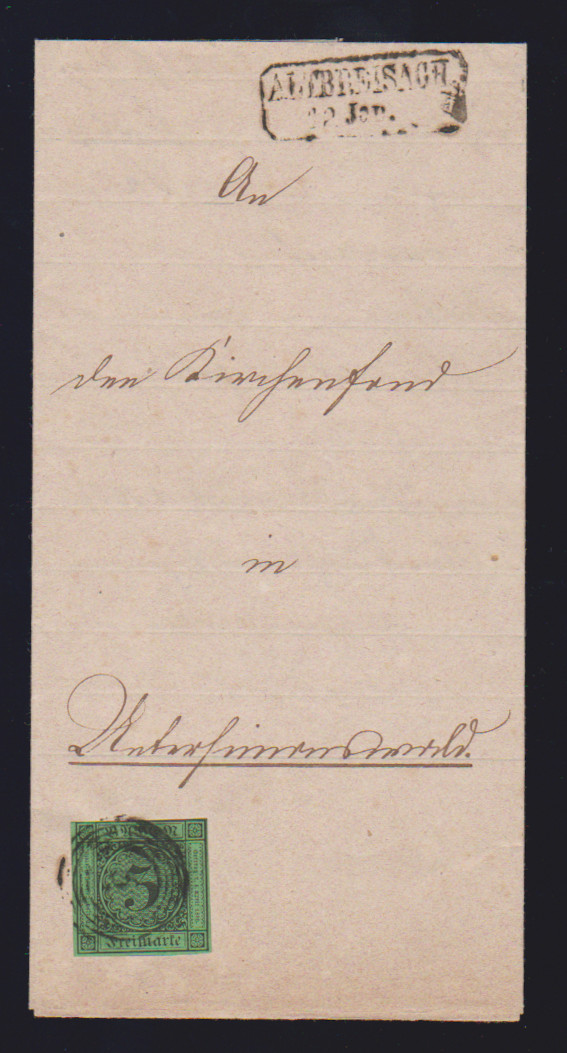 ALTBREISACH
Jan.
An
den Kirchenfond
in
Untersimonswald.
3
Freimarke